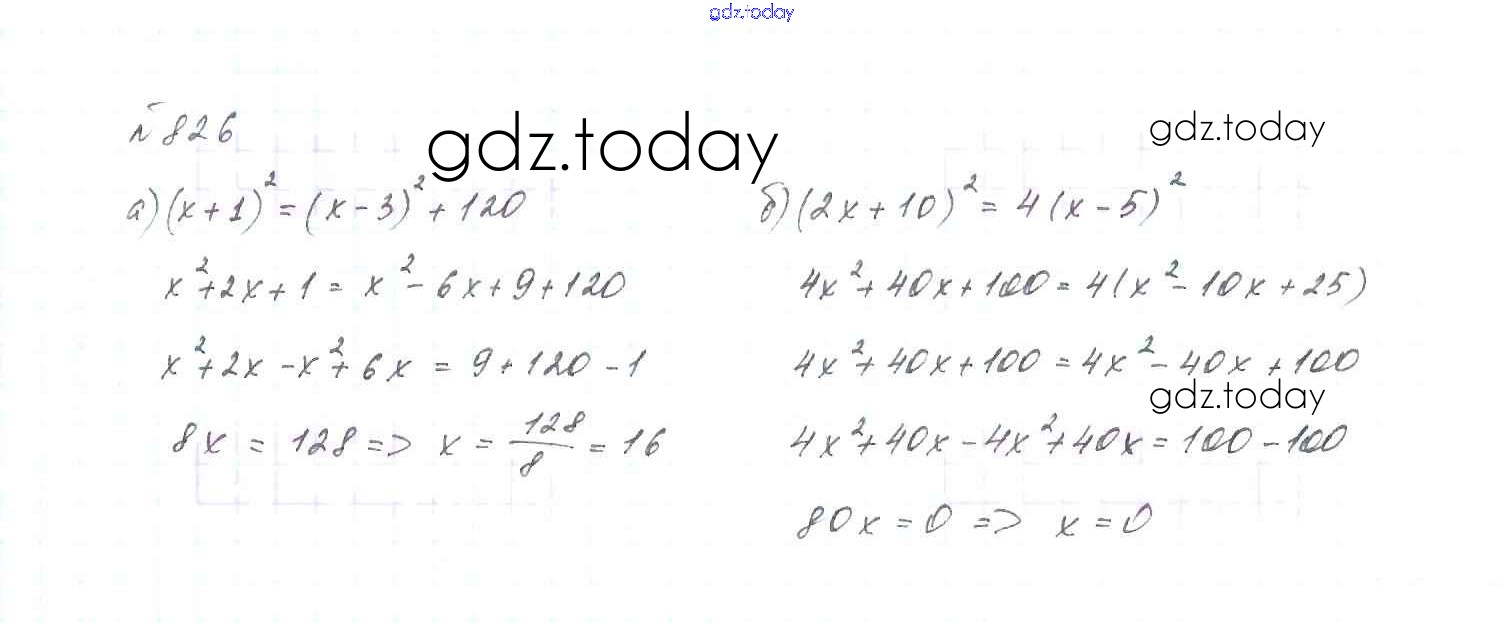 gdz.today
№ 826
gdz.today
gdz.today
а) (x+1)² = (x-3)² + 120
x²+2x+1 = x²-6x+9+120
x²+2x-x²+6x = 9+120-1
8x = 128 => x = 128/8 = 16
б) (2x+10)² = 4(x-5)²
4x²+40x+100 = 4(x²-10x+25)
4x²+40x+100 = 4x²-40x+100
gdz.today
4x²+40x-4x²+40x = 100-100
80x = 0 => x = 0